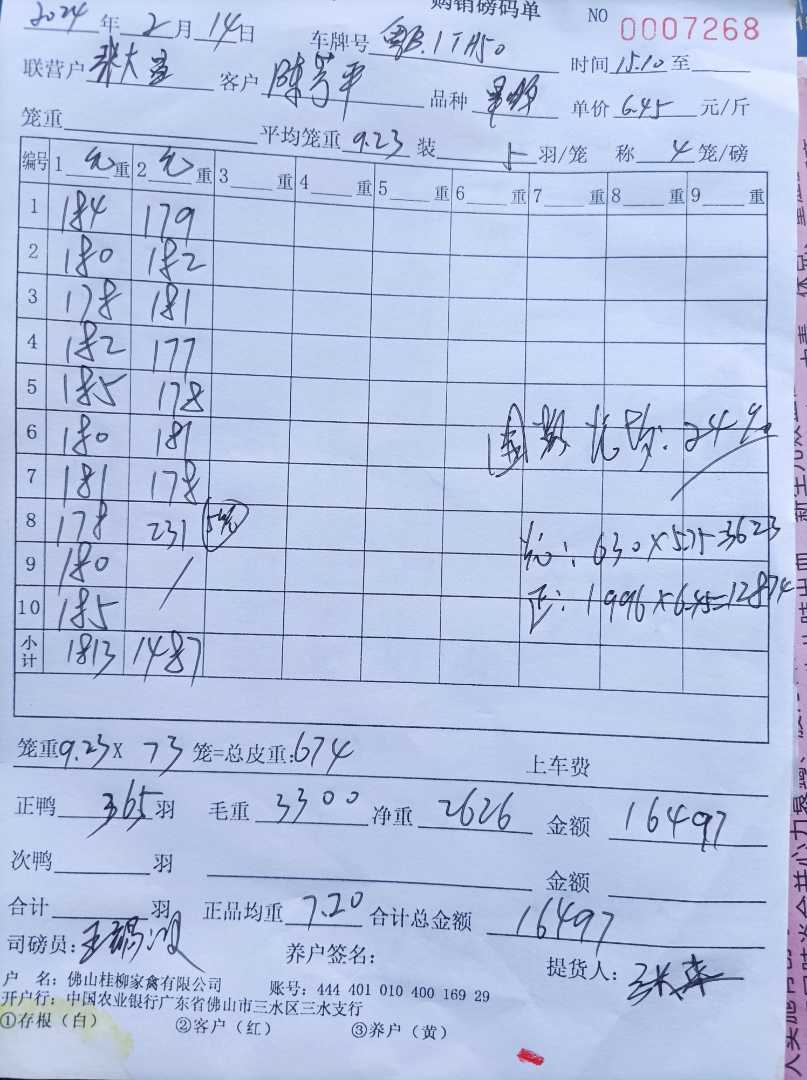 购销磅码单 NO 0007268
2024 年 2 月 14 日 车牌号 粤B.1TH50 时间 15:10 至
联营户 张大 客户 陈芳平 品种 单价 6.45 元/斤
笼重 平均笼重 9.23 装 5 羽/笼 称 4 笼/磅
编号 1 重 2 重 3 重 4 重 5 重 6 重 7 重 8 重 9 重
1 184 179
2 180 182
3 178 181
4 182 177
5 185 178
6 180 181
7 181 178
8 178 231
9 180 /
10 185
小计 1813 1487
24%
630×5.75=3623
正: 1996×6.45=12874
笼重 9.23 X 73 笼=总皮重: 674 上车费
正鸭 365 羽 毛重 3300 净重 2626 金额 16497
次鸭 羽 金额
合计 羽 正品均重 7.20 合计总金额 16497
司磅员: 王 养户签名: 提货人:
户 名: 佛山桂柳家禽有限公司 账号: 444 401 010 400 169 29
开户行: 中国农业银行广东省佛山市三水区三水支行
①存根（白） ②客户（红） ③养户（黄）